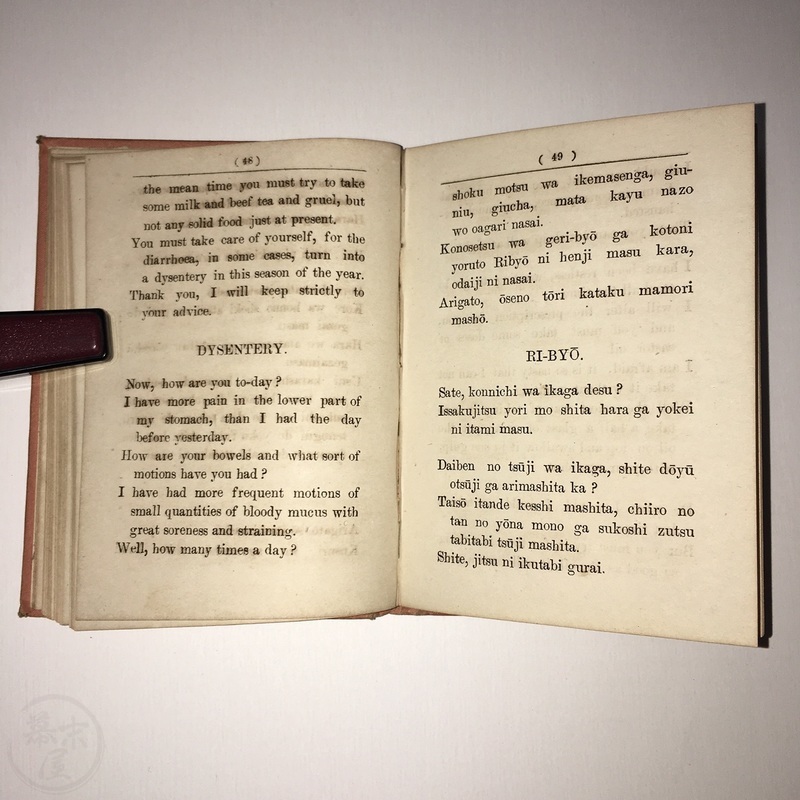 ( 48 )
the mean time you must try to take
some milk and beef tea and gruel, but
not any solid food just at present.
You must take care of yourself, for the
diarrhœa, in some cases, turn into
a dysentery in this season of the year.
Thank you, I will keep strictly to
your advice.
DYSENTERY.
Now, how are you to-day ?
I have more pain in the lower part of
my stomach, than I had the day
before yesterday.
How are your bowels and what sort of
motions have you had ?
I have had more frequent motions of
small quantities of bloody mucus with
great soreness and straining.
Well, how many times a day ?
( 49 )
shoku motsu wa ikemasenga, giu-
niu, giucha, mata kayu nazo
wo oagari nasai.
Konosetsu wa geri-byō ga kotoni
yoruto Ribyō ni henji masu kara,
odaiji ni nasai.
Arigato, ōseno tōri kataku mamori
mashō.
RI-BYŌ.
Sate, konnichi wa ikaga desu ?
Issakujitsu yori mo shita hara ga yokei
ni itami masu.
Daiben no tsūji wa ikaga, shite dōyū
otsūji ga arimashita ka ?
Taisō itande kesshi mashita, chiiro no
tan no yōna mono ga sukoshi zutsu
tabitabi tsūji mashita.
Shite, jitsu ni ikutabi gurai.
幕末屋